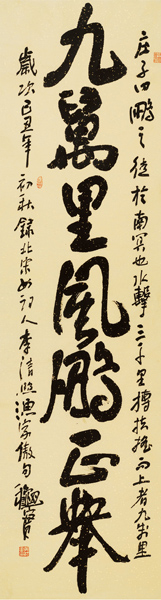 九萬里風鵬正舉
庄子曰鵬之徙於南冥也水擊三千里摶扶搖而上者九万里
歲次己丑年初秋錄北宋女詞人李清照漁家傲句